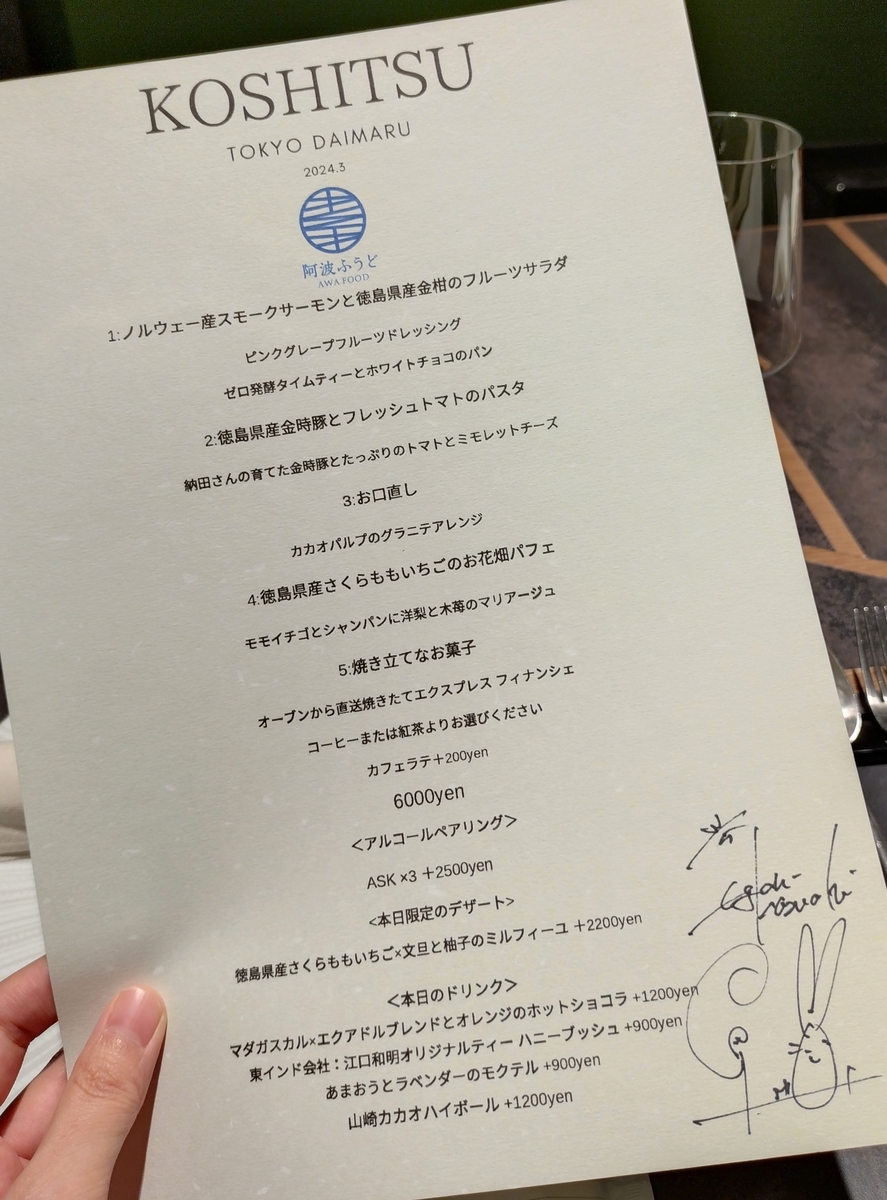 KOSHITSU
TOKYO DAIMARU
2024.3
阿波ふうど
AWA FOOD
1:ノルウェー産スモークサーモンと徳島県産金柑のフルーツサラダ
ピンクグレープフルーツドレッシング
ゼロ発酵タイムティーとホワイトチョコのパン
2:徳島県産金時豚とフレッシュトマトのパスタ
納田さんの育てた金時豚とたっぷりのトマトとミモレットチーズ
3:お口直し
カカオパルプのグラニテアレンジ
4:徳島県産さくらももいちごのお花畑パフェ
モモイチゴとシャンパンに洋梨と木苺のマリアージュ
5:焼き立てなお菓子
オーブンから直送焼きたてエクスプレス フィナンシェ
コーヒーまたは紅茶よりお選びください
カフェラテ＋200yen
6000yen
＜アルコールペアリング＞
ASK ×3 ＋2500yen
<本日限定のデザート>
徳島県産さくらももいちご×文旦と柚子のミルフィーユ ＋2200yen
＜本日のドリンク＞
マダガスカル×エクアドルブレンドとオレンジのホットショコラ +1200yen
東インド会社：江口和明オリジナルティー ハニーブッシュ +900yen
あまおうとラベンダーのモクテル +900yen
山崎カカオハイボール +1200yen